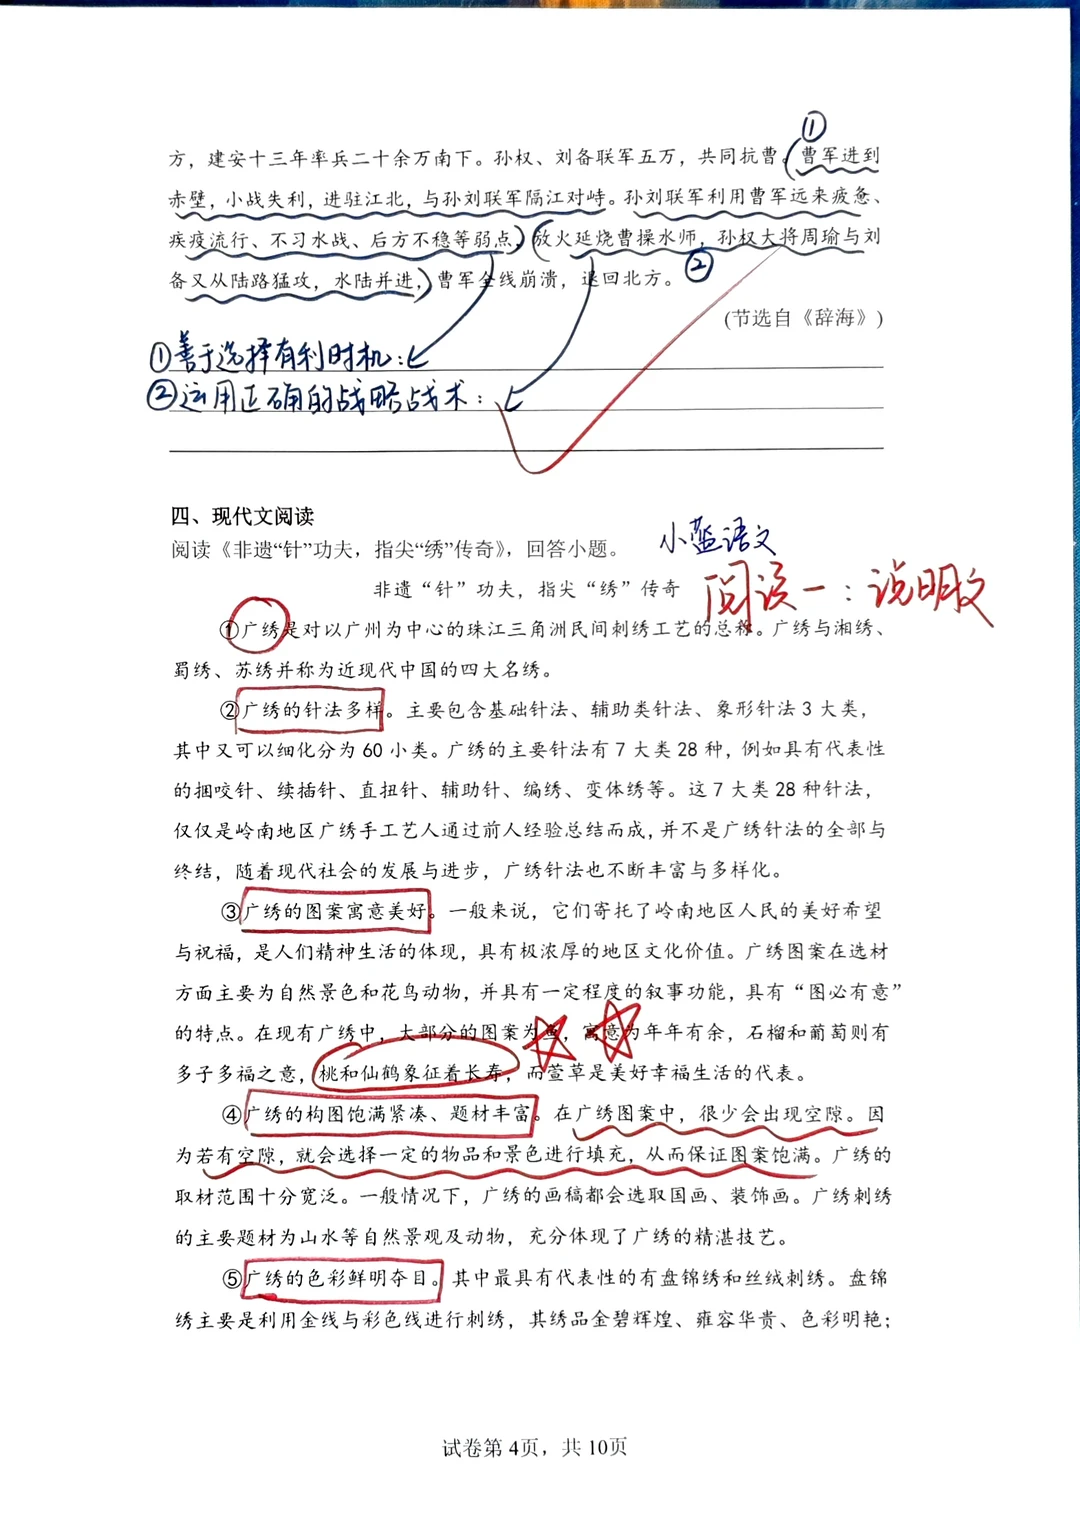 ①
方，建安十三年率兵二十余万南下。孙权、刘备联军五万，共同抗曹。曹军进到
赤壁，小战失利，进驻江北，与孙刘联军隔江对峙。孙刘联军利用曹军远来疲惫、
疾疫流行、不习水战、后方不稳等弱点，放火延烧曹操水师，孙权大将周瑜与刘
备又从陆路猛攻，水陆并进，曹军全线崩溃，退回北方。
②
(节选自《辞海》)
①善于选择有利时机：
②运用正确的战略战术：
四、现代文阅读
阅读《非遗“针”功夫，指尖“绣”传奇》，回答小题。
小蓝语文
非遗“针”功夫，指尖“绣”传奇
阅读一：说明文
①广绣是对以广州为中心的珠江三角洲民间刺绣工艺的总称。广绣与湘绣、
蜀绣、苏绣并称为近现代中国的四大名绣。
②广绣的针法多样。主要包含基础针法、辅助类针法、象形针法 3 大类，
其中又可以细化分为 60 小类。广绣的主要针法有 7 大类 28 种，例如具有代表性
的捆咬针、续插针、直扭针、辅助针、编绣、变体绣等。这 7 大类 28 种针法，
仅仅是岭南地区广绣手工艺人通过前人经验总结而成，并不是广绣针法的全部与
终结，随着现代社会的发展与进步，广绣针法也不断丰富与多样化。
③广绣的图案寓意美好。一般来说，它们寄托了岭南地区人民的美好希望
与祝福，是人们精神生活的体现，具有极浓厚的地区文化价值。广绣图案在选材
方面主要为自然景色和花鸟动物，并具有一定程度的叙事功能，具有“图必有意”
的特点。在现有广绣中，大部分的图案为鱼，寓意为年年有余，石榴和葡萄则有
多子多福之意，桃和仙鹤象征着长寿，而萱草是美好幸福生活的代表。
④广绣的构图饱满紧凑、题材丰富。在广绣图案中，很少会出现空隙。因
为若有空隙，就会选择一定的物品和景色进行填充，从而保证图案饱满。广绣的
取材范围十分宽泛。一般情况下，广绣的画稿都会选取国画、装饰画。广绣刺绣
的主要题材为山水等自然景观及动物，充分体现了广绣的精湛技艺。
⑤广绣的色彩鲜明夺目。其中最具有代表性的有盘锦绣和丝绒刺绣。盘锦
绣主要是利用金线与彩色线进行刺绣，其绣品金碧辉煌、雍容华贵、色彩明艳；
试卷第 4页，共 10页